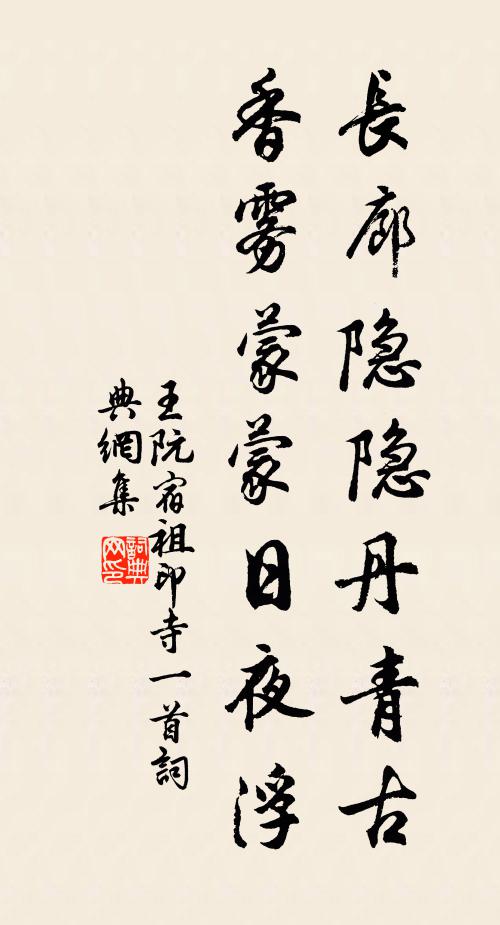 長廊隐隐丹青古
香雾蒙蒙日夜浮
王阮宿祖印寺一首詞
典網集
詞典網印